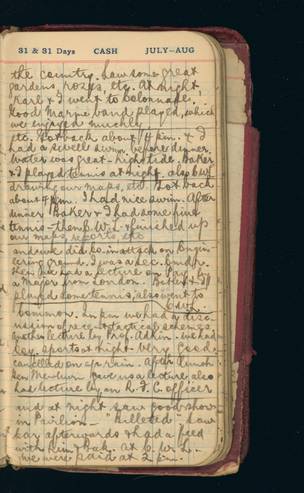 31 & 31 Days CASH JULY-AUG
the country. Saw some great
gardens, roses, etc. At night
Karl & I went to Colonnade.
Good Marine band played, which
we enjoyed muchly
etc. Got back about 4 p.m. & I
had a swell swim before dinner.
Water was great - high tide. Baker
& I played tennis at night. also
drawing our maps, etc. Got back
about 4 pm. I had nice swim. After
dinner Baker & I had some fine
tennis - then & finished up
our maps, reports, etc.
did co. in attack on
ground. I was
we had a lecture on by
a Major from London. Baker & I
played some tennis, also went to
Common. In pm we had a disc-
ussion of recent tactical schemes,
another lecture by Prof. Adkin. We had
sports at night. Very Good.
cancelled on a/c rain. After lunch
gave us a lecture also
had lecture by an R.F.C. officer
and at night saw good show
in Pavilion - "Billeted" saw
afterwards & had a feed
with him & Bak. at
We were paid at 2 p.m.